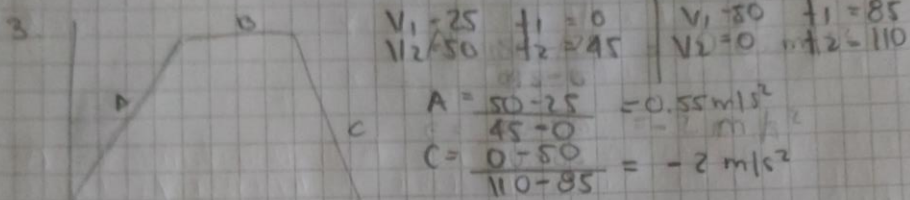 3
B
A
C
V1 = 25 t1 = 0
V2 = 50 t2 = 45
V1 = 50 t1 = 85
V2 = 0 t2 = 110
A = 50 - 25 / 45 - 0 = 0.55 m/s²
C = 0 - 50 / 110 - 85 = - 2 m/s²